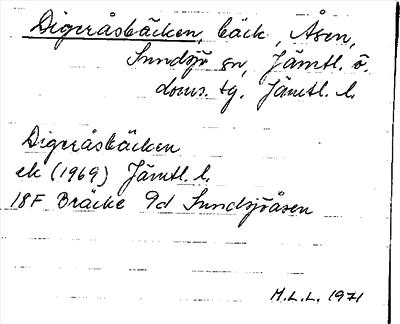 Digeråsbäcken, bäck, Åsen,
Sundsjö sn, Jämtl. ö.
doms. tg. Jämtl. l.
Digeråsbäcken
ek (1969) Jämtl. l.
18F Bräcke 9d Sundsjöåsen
M.L.L. 1971